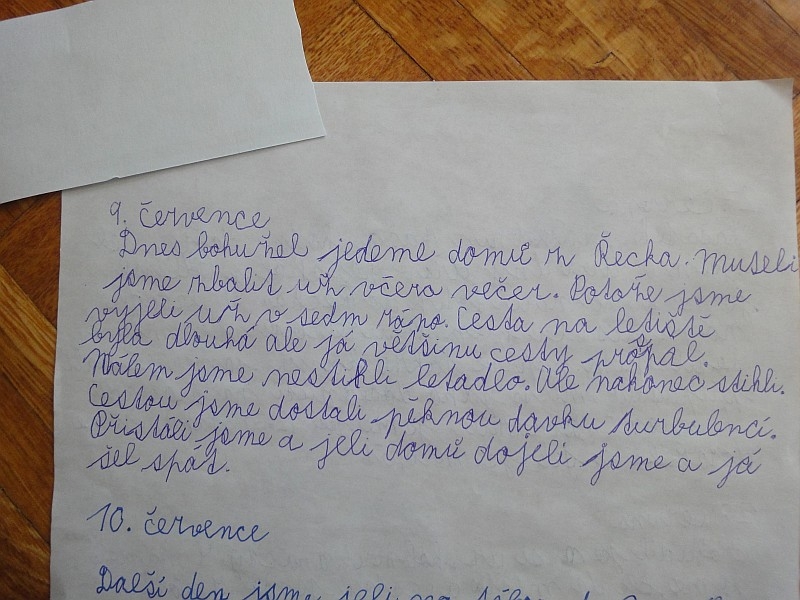 9. července
Dnes bohužel jedeme domů z Řecka. Museli
jsme zbalit už včera večer. Potože jsme
vyjeli už v sedm ráno. Cesta na letiště
byla dlouhá ale já většinu cesty prospal.
Málem jsme nestihli letadlo. Ale nakonec stihli.
Cestou jsme dostali pěknou davku turbulencí.
Přistáli jsme a jeli domů dojeli jsme a já
šel spát.
10. července
Další den jsme jeli na